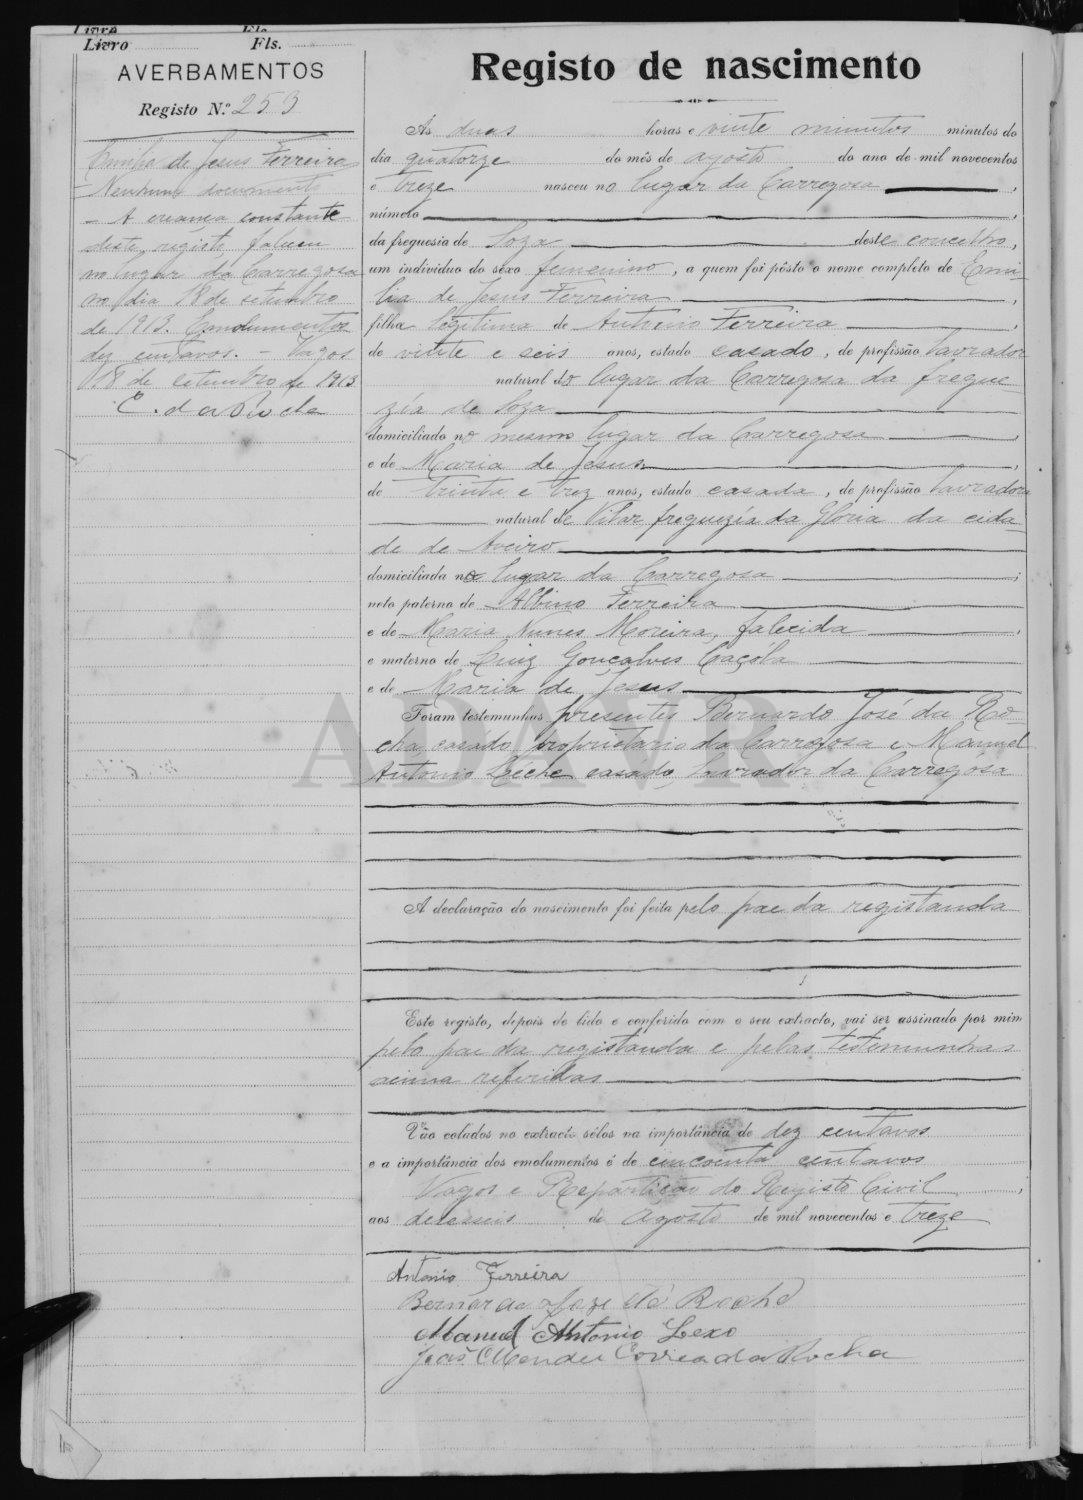 Livro Fls.
Livro Fls.
AVERBAMENTOS
Registo N.º 253
Emilia de Jesus Ferreira
- Nenhum documento
- A creança constante
deste registo faleceu
no lugar da Carregosa
no dia 18 de setembro
de 1913. Emolumentos
dez centavos. - Vagos
18 de setembro de 1913
C. da Rocha
Registo de nascimento
Ás duas horas e vinte minutos minutos do
dia quatorze do mês de agosto do ano de mil novecentos
e treze nasceu no lugar da Carregosa,
número,
da freguesia de Soza deste concelho,
um indivíduo do sexo femenino, a quem foi pôsto o nome completo de Emi-
lia de Jesus Ferreira,
filha legitima de Antonio Ferreira,
de vinte e seis anos, estado casado, de profissão lavrador
natural do lugar da Carregosa da fregue-
zía de Soza
domiciliado no mesmo lugar da Carregosa,
e de Maria de Jesus,
de trinta e trez anos, estado casada, de profissão lavradora
natural de Vilar freguezía da Gloria da cida-
de de Aveiro
domiciliada no lugar da Carregosa;
neto paterno de Albino Ferreira
e de Maria Nunes Moreira, falecida,
e materno de Luiz Gonçalves Caçóla
e de Maria de Jesus
Foram testemunhas presentes Bernardo José da Ro-
cha casado proprietario da Carregosa e Manuel
Antonio Léche casado, lavrador da Carregósa
ADAVR
A declaração do nascimento foi feita pelo pae da registanda
Este registo, depois de lido e conferido com o seu extracto, vai ser assinado por mim
pelo pae da registanda e pelas testemunhas
acima referidas
Vão colados no extracto sêlos na importância de dez centavos
e a importância dos emolumentos é de cincoenta centavos
Vagos e Repartição do Registo Civil,
aos deseseis de Agosto de mil novecentos e treze
Antonio Ferreira
Bernardo Joze da Rocha
Manuel Antonio Lexo
João Mendes Correa da Rocha